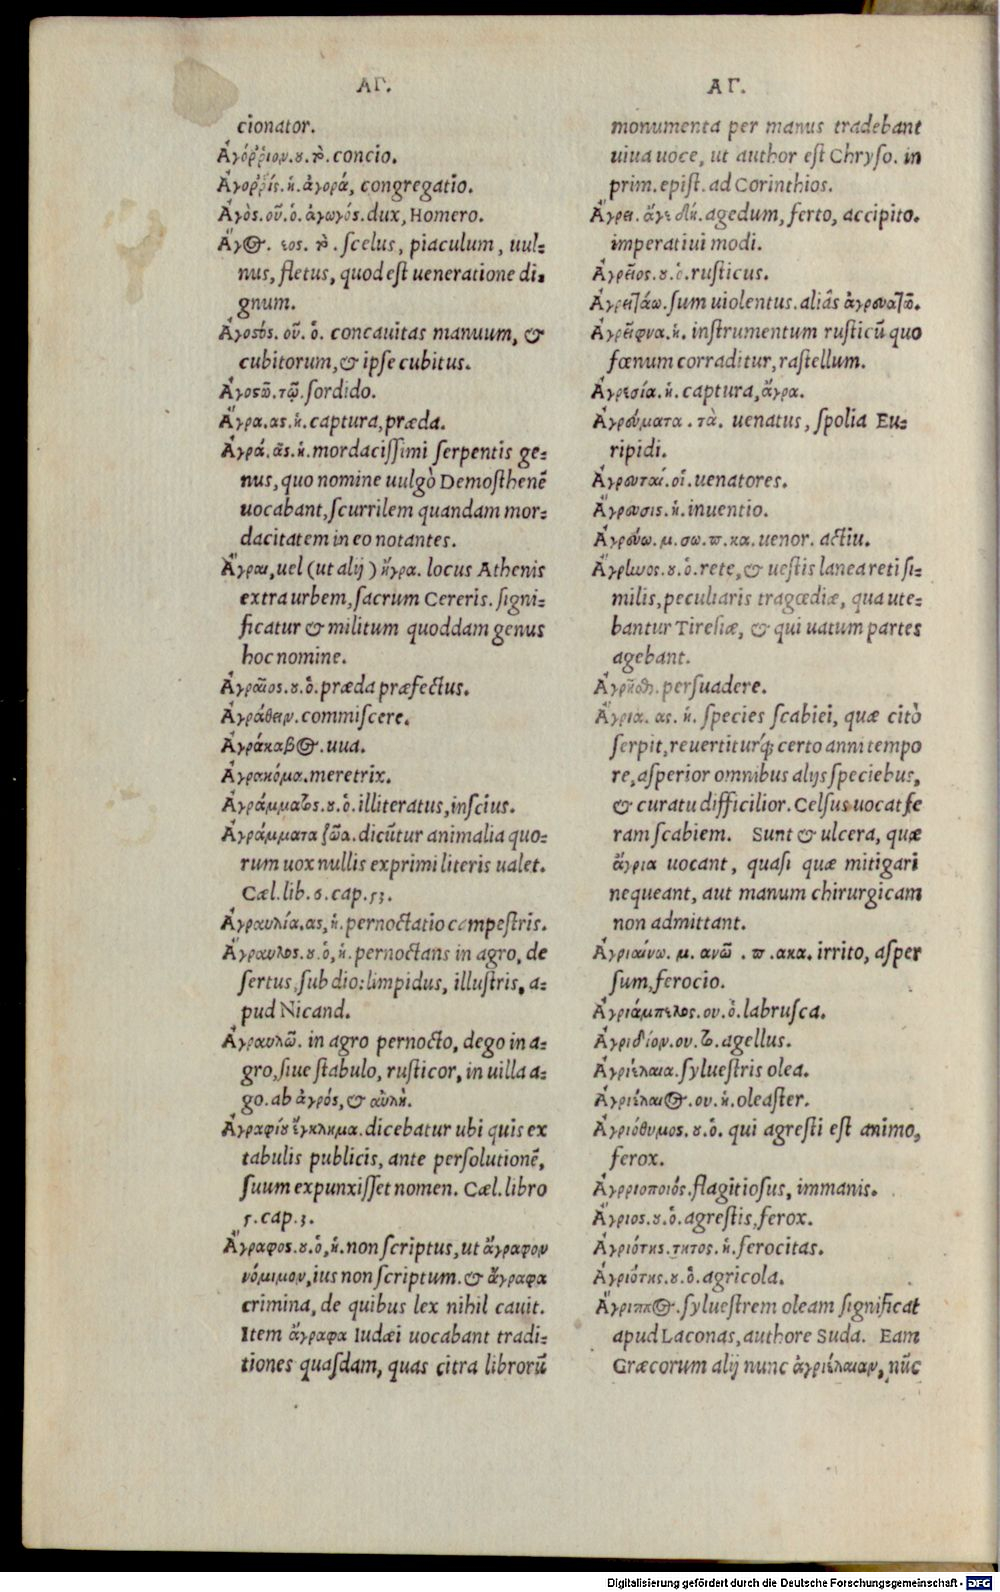 ΑΓ.
cionator.
Ἀγόῤῥιον.ου.τὸ. concio.
Ἀγοῤῥίς.ἡ.ἀγορά, congregatio.
Ἀγὸς.οῦ.ὁ.ἀγωγός. dux, Homero.
Ἄγος. εος. τὸ. ſcelus, piaculum, uul-
nus, fletus, quod eſt ueneratione di-
gnum.
Ἀγοστὸς. οῦ. ὁ. concauitas manuum, &
cubitorum, & ipſe cubitus.
Ἀγοστῶ.τῷ. ſordido.
Ἄγρα.ας.ἡ. captura, præda.
Ἀγρά.ᾶς.ἡ. mordaciſſimi ſerpentis ge-
nus, quo nomine uulgò Demoſthenẽ
uocabant, ſcurrilem quandam mor-
dacitatem in eo notantes.
Ἄγραι, uel (ut alij) ἤγρα. locus Athenis
extra urbem, ſacrum Cereris. ſigni-
ficatur & militum quoddam genus
hoc nomine.
Ἀγραῖος.ου.ὁ. præda præfectus.
Ἀγράθειν. commiſcere.
Ἀγράκαβος. uua.
Ἀγρακόμα. meretrix.
Ἀγράμματος.ου.ὁ. illiteratus, inſcius.
Ἀγράμματα ζῶα. dicũtur animalia quo-
rum uox nullis exprimi literis ualet.
Cæl. lib. 6. cap. 53.
Ἀγραυλία.ας, ἡ. pernoctatio campeſtris.
Ἄγραυλος.ου.ὁ, ἡ. pernoctans in agro, de
ſertus, ſub dio: limpidus, illuſtris, a-
pud Nicand.
Ἀγραυλῶ. in agro pernocto, dego in a-
gro, ſiue ſtabulo, ruſticor, in uilla a-
go. ab ἀγρός, & αὐλὴ.
Ἀγραφίου ἔγκλημα. dicebatur ubi quis ex
tabulis publicis, ante perſolutionẽ,
ſuum expunxiſſet nomen. Cæl. libro
5. cap. 3.
Ἄγραφος.ου.ὁ, ἡ. non ſcriptus, ut ἄγραφον
νόμιμον, ius non ſcriptum. & ἄγραφα
crimina, de quibus lex nihil cauit.
Item ἄγραφα Iudæi uocabant tradi-
tiones quaſdam, quas citra librorũ
ΑΓ.
monumenta per manus tradebant
uiua uoce, ut author eſt Chryſo. in
prim. epiſt. ad Corinthios.
Ἄγρει. ἄγε δὴ. agedum, ferto, accipito.
imperatiui modi.
Ἀγρεῖος.ου.ὁ. ruſticus.
Ἀγρειτάω. ſum uiolentus. aliâs ἀγρευατῶ.
Ἀγρεῖφνα.ἡ. inſtrumentum ruſticũ quo
fœnum corraditur, raſtellum.
Ἀγρεσία.ἡ. captura, ἄγρα.
Ἀγρεύματα. τὰ. uenatus, ſpolia Eu-
ripidi.
Ἀγρευταί.οἱ. uenatores.
Ἄγρευσις.ἡ. inuentio.
Ἀγρεύω.μ.σω.π.κα. uenor. actiu.
Ἄγρηνος.ου.ὁ. rete, & ueſtis lanea reti ſi-
milis, peculiaris tragœdiæ, qua ute-
bantur Tireſiæ, & qui uatum partes
agebant.
Ἀγρῆσθη. perſuadere.
Ἄγρια. ας. ἡ. ſpecies ſcabiei, quæ citò
ſerpit, reuertiturq́; certo anni tempo
re, aſperior omnibus alijs ſpeciebus,
& curatu difficilior. Celſus uocat fe
ram ſcabiem. Sunt & ulcera, quæ
ἄγρια uocant, quaſi quæ mitigari
nequeant, aut manum chirurgicam
non admittant.
Ἀγριαίνω. μ. ανῶ. π. ακα. irrito, aſper
ſum, ferocio.
Ἀγριάμπελος.ου.ὁ. labruſca.
Ἀγριδίον.ου.το. agellus.
Ἀγριέλαια. ſylueſtris olea.
Ἀγριέλαιος.ου.ἡ. oleaſter.
Ἀγριόθυμος.ου.ὁ. qui agreſti eſt animo,
ferox.
Ἀγρριοποιός. flagitioſus, immanis.
Ἄγριος.ου.ὁ. agreſtis, ferox.
Ἀγριότης.τητος.ἡ. ferocitas.
Ἀγριότης.ου.ὁ. agricola.
Ἄγριππος. ſylueſtrem oleam ſignificat
apud Laconas, authore Suda. Eam
Græcorum alij nunc ἀγριέλαιαν, nũc
Digitalisierung gefördert durch die Deutsche Forschungsgemeinschaft - DFG